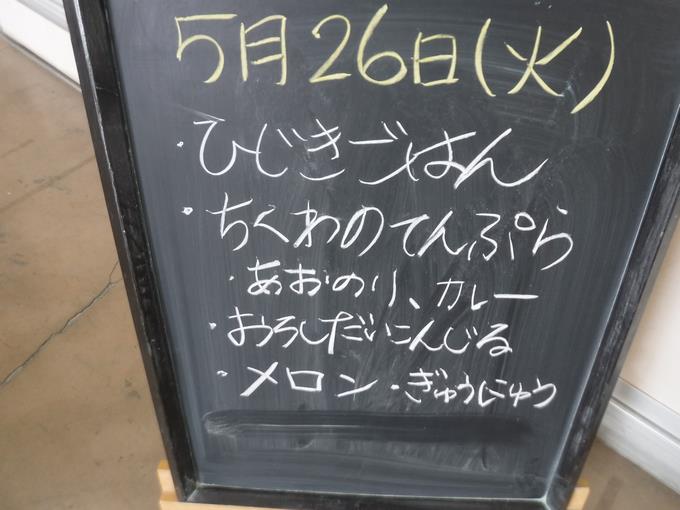 5月26日(火)
・ひじきごはん
・ちくわのてんぷら
・あおのり、カレー
・おろしだいこんじる
・メロン・ぎゅうにゅう